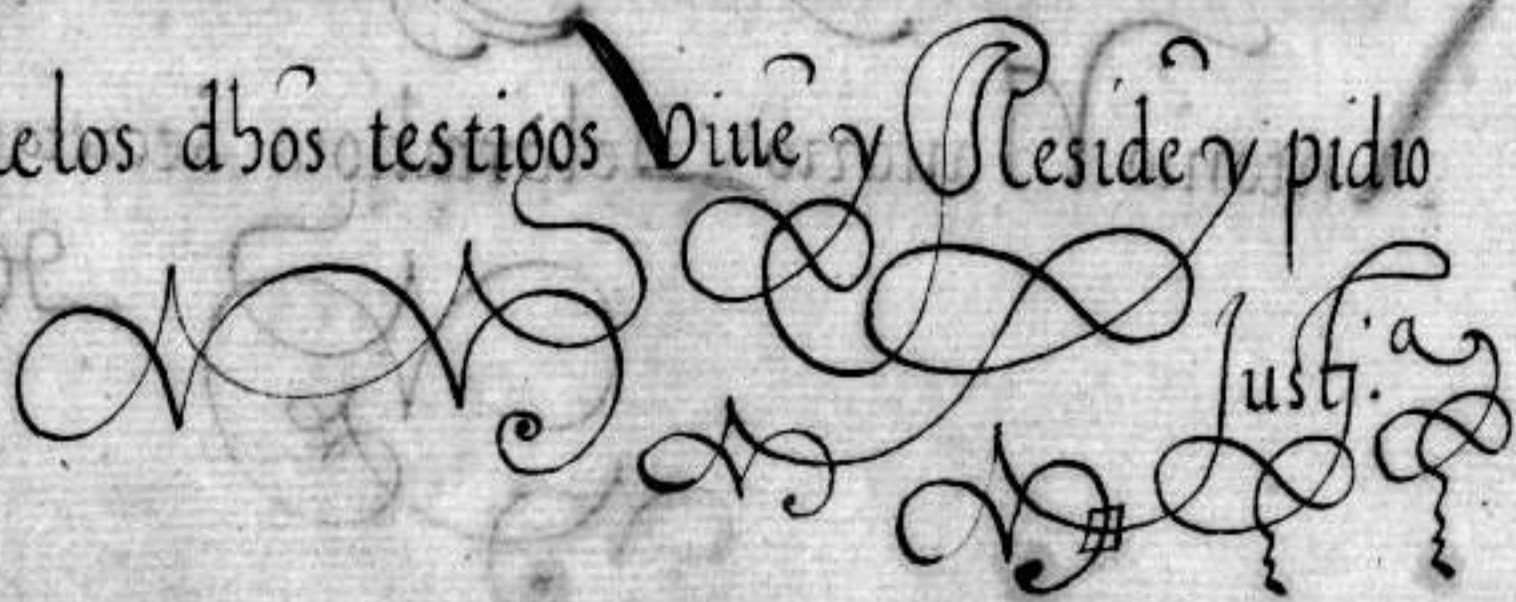 elos dhos testigos Viuē y Residē y pidio
Justi.a